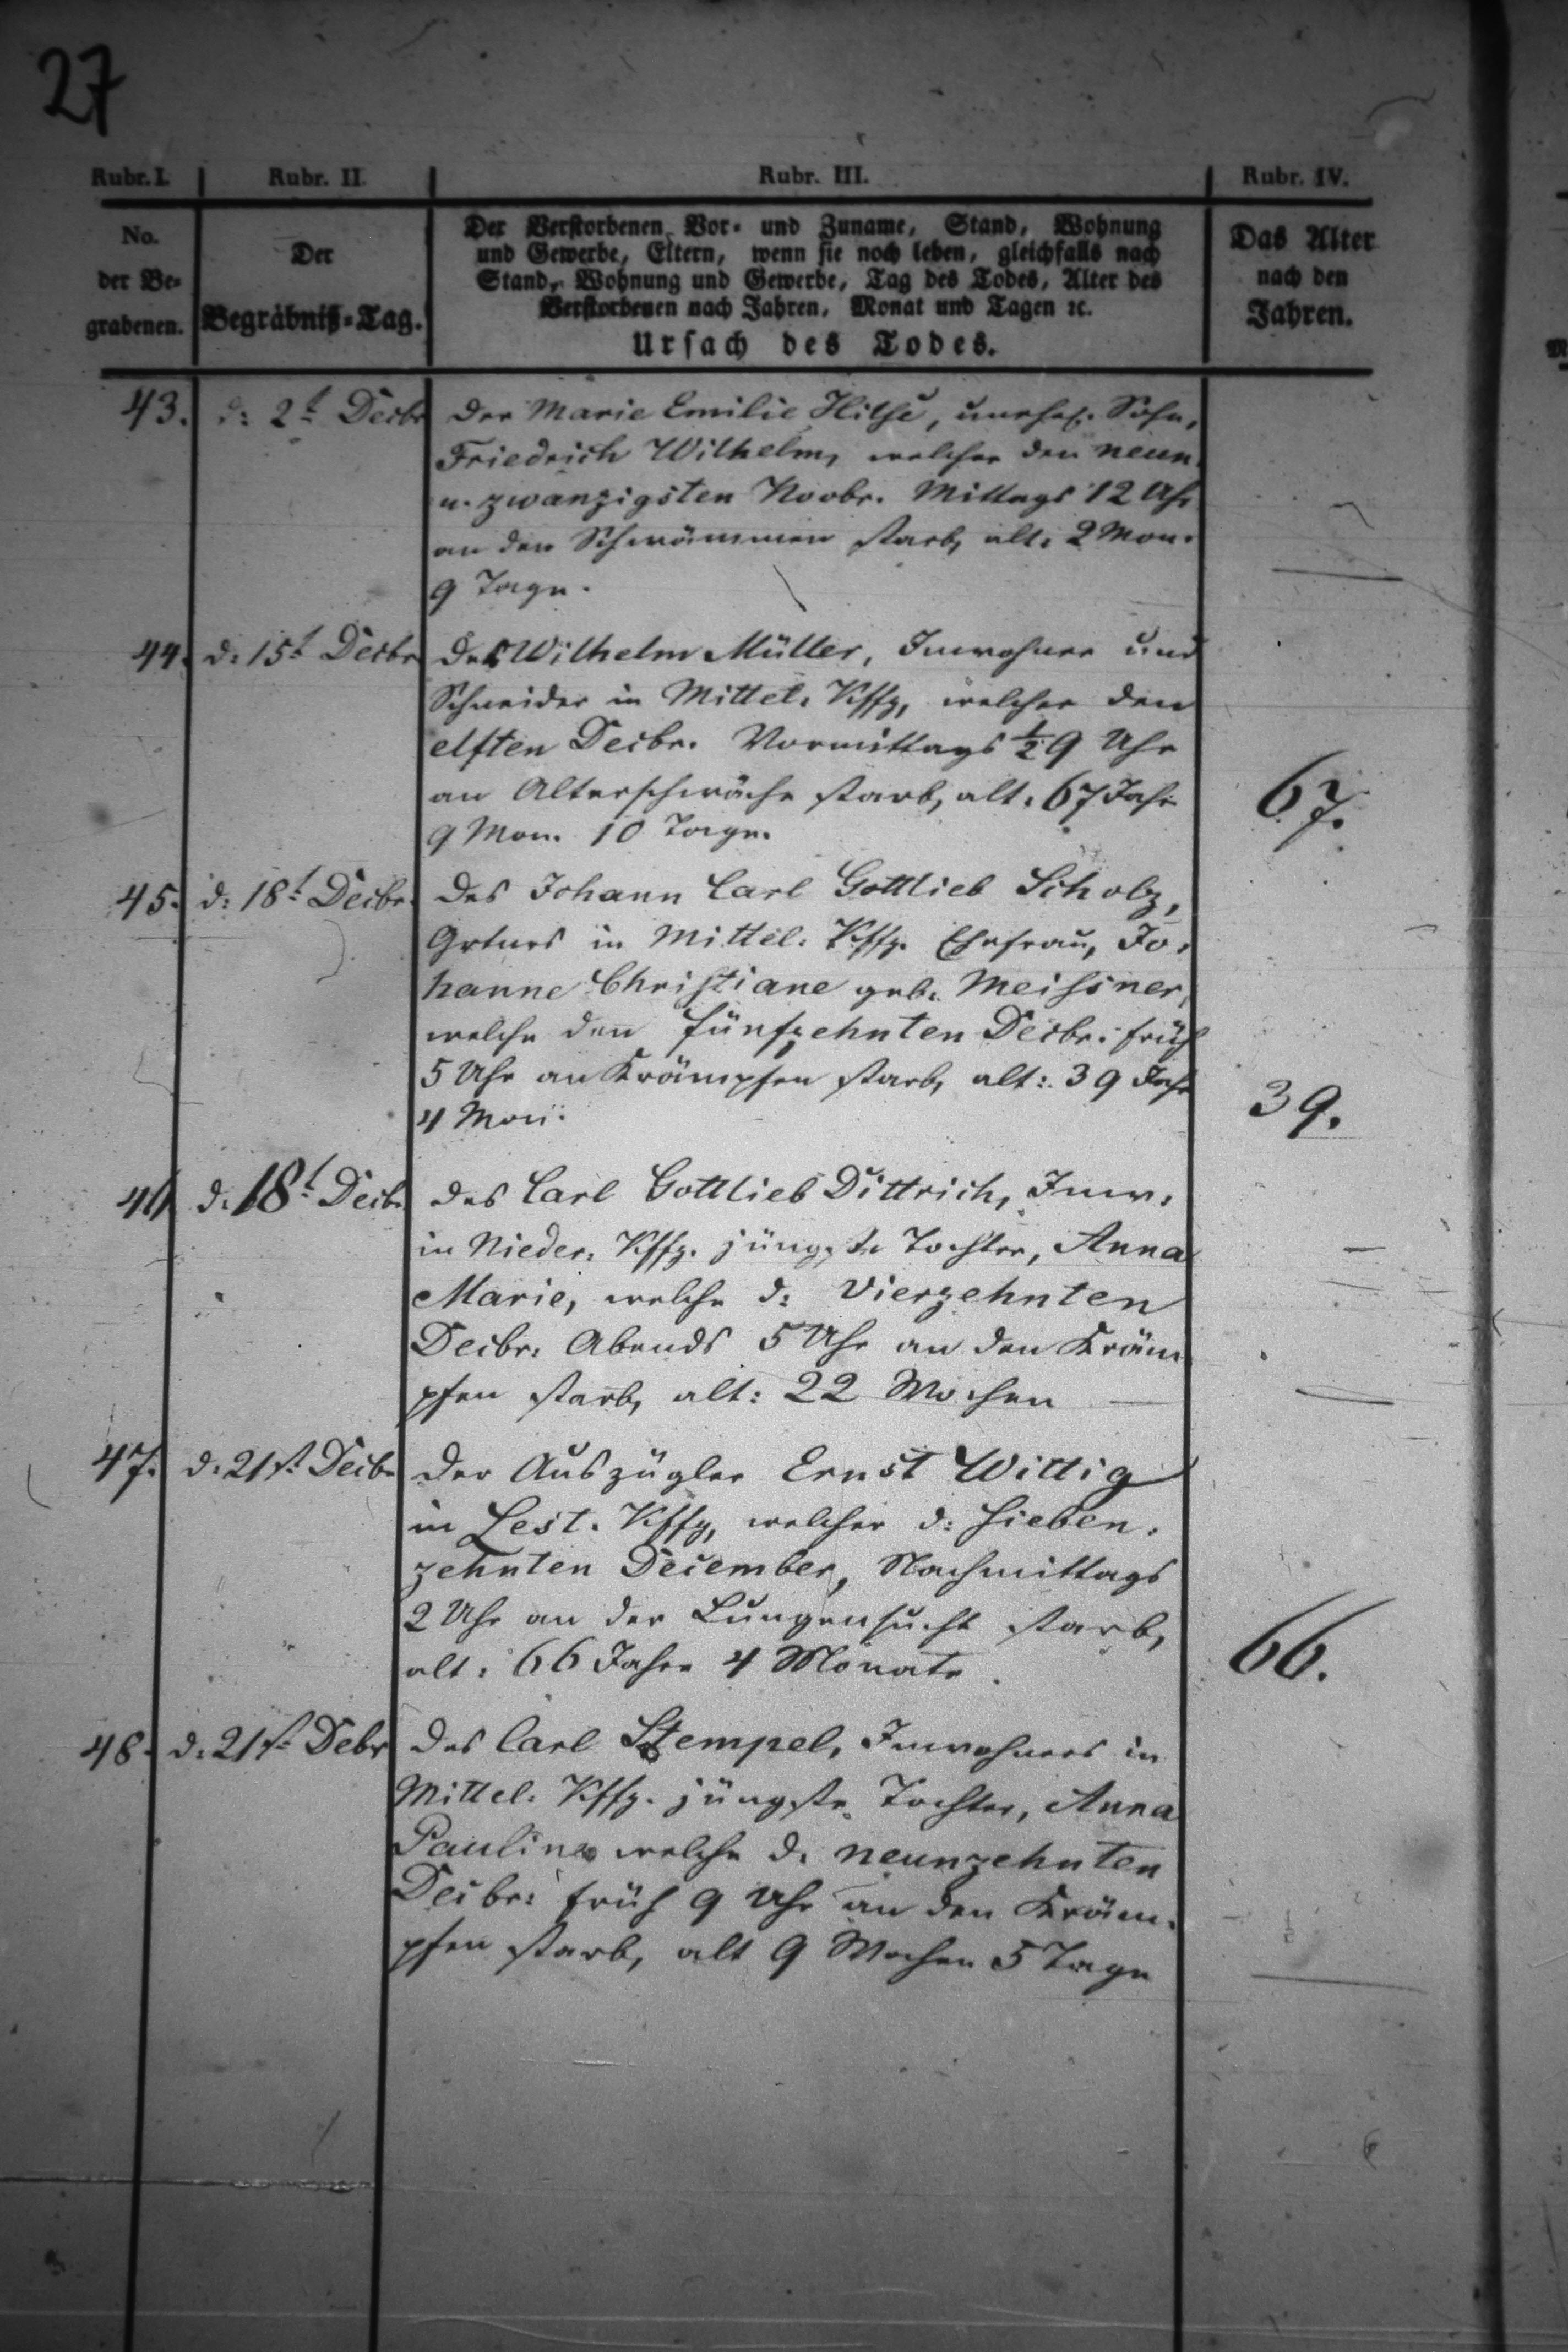 27
Rubr. I. Rubr. II. Rubr. III. Rubr. IV.
No. der Be- grabenen.
Der Begräbniß-Tag.
Der Verstorbenen Vor- und Zuname, Stand, Wohnung
und Gewerbe, Eltern, wenn sie noch leben, gleichfalls nach
Stand, Wohnung und Gewerbe, Tag des Todes, Alter des
Verstorbenen nach Jahren, Monat und Tagen ꝛc.
Ursach des Todes.
Das Alter nach den Jahren.
43. d: 2t Decbr Der Marie Emilie Hilse, unehel. Sohn,
Friedrich Wilhelm, welcher den neun
u. zwanzigsten Novbr. Mittags 12 Uhr
an den Schwämmen starb, alt: 2 Mon.
9 Tage.
44. d: 15t Decbr Der Wilhelm Müller, Inwohner und
Schneider in Mittel. Kffg, welcher den
elften Decbr. Vormittags ½ 9 Uhr
an Alterschwäche starb, alt: 67 Jahr 67.
9 Mon. 10 Tage.
45. d: 18t Decbr. Des Johann Carl Gottlieb Scholz,
Grtners in Mittel: Kffg. Ehefrau, Jo-
hanne Christiane geb. Meissner,
welche den fünfzehnten Decbr. früh
5 Uhr an Krämpfen starb, alt: 39 Jahr 39.
4 Mon.
46 d: 18t Decbr Des Carl Gottlieb Dittrich, Inw.
in Nieder. Kffg. jüngste Tochter, Anna
Marie, welche d: Vierzehnten
Decbr. Abends 5 Uhr an den Kräm
pfen starb, alt: 22 Wochen —
47. d: 21st Decbr Der Auszügler Ernst Wittig
in Lest. Kffg, welcher d: sieben-
zehnten December, Nachmittags
2 Uhr an der Lungensucht starb,
alt: 66 Jahre 4 Monate. 66.
48. d: 21st Debr Des Carl Stempel, Inwohners in
Mittel. Kffg. jüngste Tochter, Anna
Pauline welche d. neunzehnten
Decbr: früh 9 Uhr an den Kräm-
pfen starb, alt 9 Wochen 5 Tage